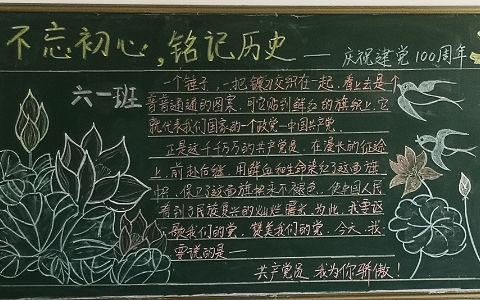 不忘初心,铭记历史
——庆祝建党100周年
六一班
一个锤子,一把镰刀交织在一起,看上去是个
普普通通的图案,可它贴到鲜红的旗帜上,它
就代表我们国家的一个政党—中国共产党。
正是这千千万万的共产党员,在漫长的征途
上,前赴后继,用鲜血和生命染红了这面旗
帜,保卫了这面旗帜永不褪色,使中国人民
看到了民族复兴的灿烂曙光,为此,我要讴
歌我们的党,赞美我们的党,今天,我
要说的是—
共产党员,我为你骄傲!